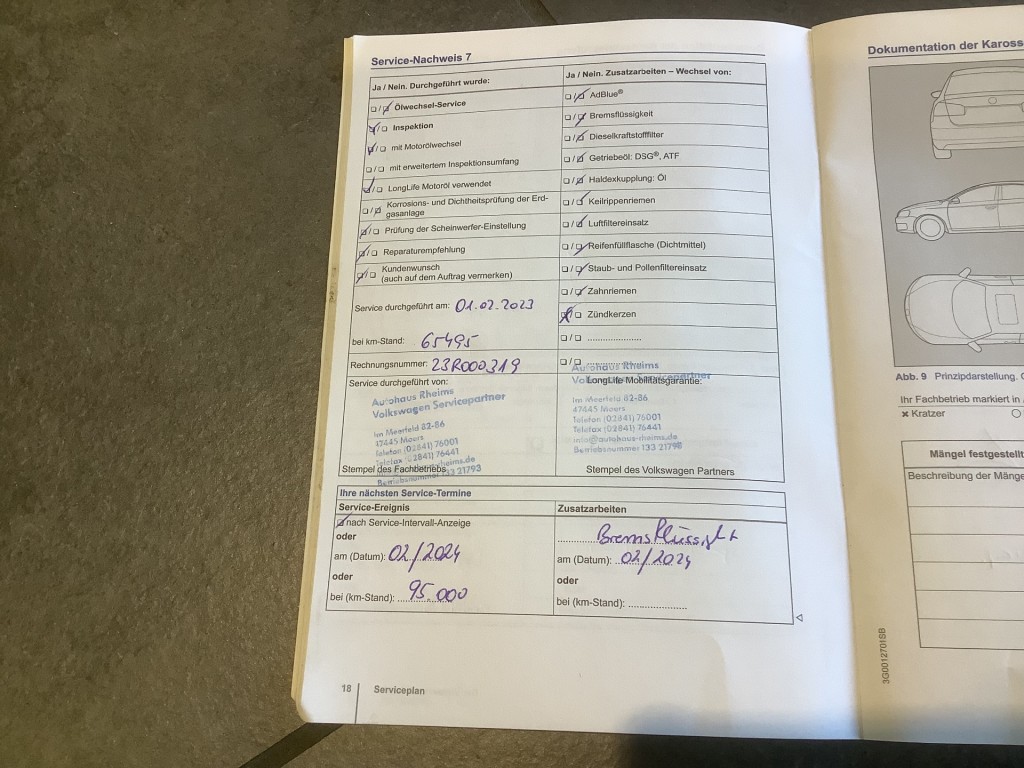 Service-Nachweis 7
Ja / Nein. Durchgeführt wurde:
Ölwechsel-Service
Inspektion
mit Motorölwechsel
mit erweitertem Inspektionsumfang
LongLife Motoröl verwendet
Korrosions- und Dichtheitsprüfung der Erd-
gasanlage
Prüfung der Scheinwerfer-Einstellung
Reparaturempfehlung
Kundenwunsch
(auch auf dem Auftrag vermerken)
Service durchgeführt am: 01.02.2023
bei km-Stand: 65495
Rechnungsnummer: 23R000319
Service durchgeführt von:
Autohaus Rheims
Volkswagen Servicepartner
Im Meerfeld 82-86
47445 Moers
Telefon (02841) 76001
Telefax (02841) 76441
Betriebsnummer 133 21793
Stempel des Fachbetriebs
Ja / Nein. Zusatzarbeiten – Wechsel von:
AdBlue®
Bremsflüssigkeit
Dieselkraftstofffilter
Getriebeöl: DSG®, ATF
Haldexkupplung: Öl
Keilrippenriemen
Luftfiltereinsatz
Reifenfüllflasche (Dichtmittel)
Staub- und Pollenfiltereinsatz
Zahnriemen
Zündkerzen
Autohaus Rheims
Volkswagen Servicepartner
LongLife Mobilitätsgarantie:
Im Meerfeld 82-86
47445 Moers
Telefon (02841) 76001
Telefax (02841) 76441
info@autohaus-rheims.de
Betriebsnummer 133 21793
Stempel des Volkswagen Partners
Ihre nächsten Service-Termine
Service-Ereignis
nach Service-Intervall-Anzeige
oder
am (Datum): 02/2024
oder
bei (km-Stand): 95.000
Zusatzarbeiten
am (Datum): 02/2024
oder
bei (km-Stand):
18
Serviceplan
Dokumentation der Kaross
Abb. 9 Prinzipdarstellung.
Ihr Fachbetrieb markiert in
Kratzer
Mängel festgestellt
Beschreibung der Mänge
3G0012701SB